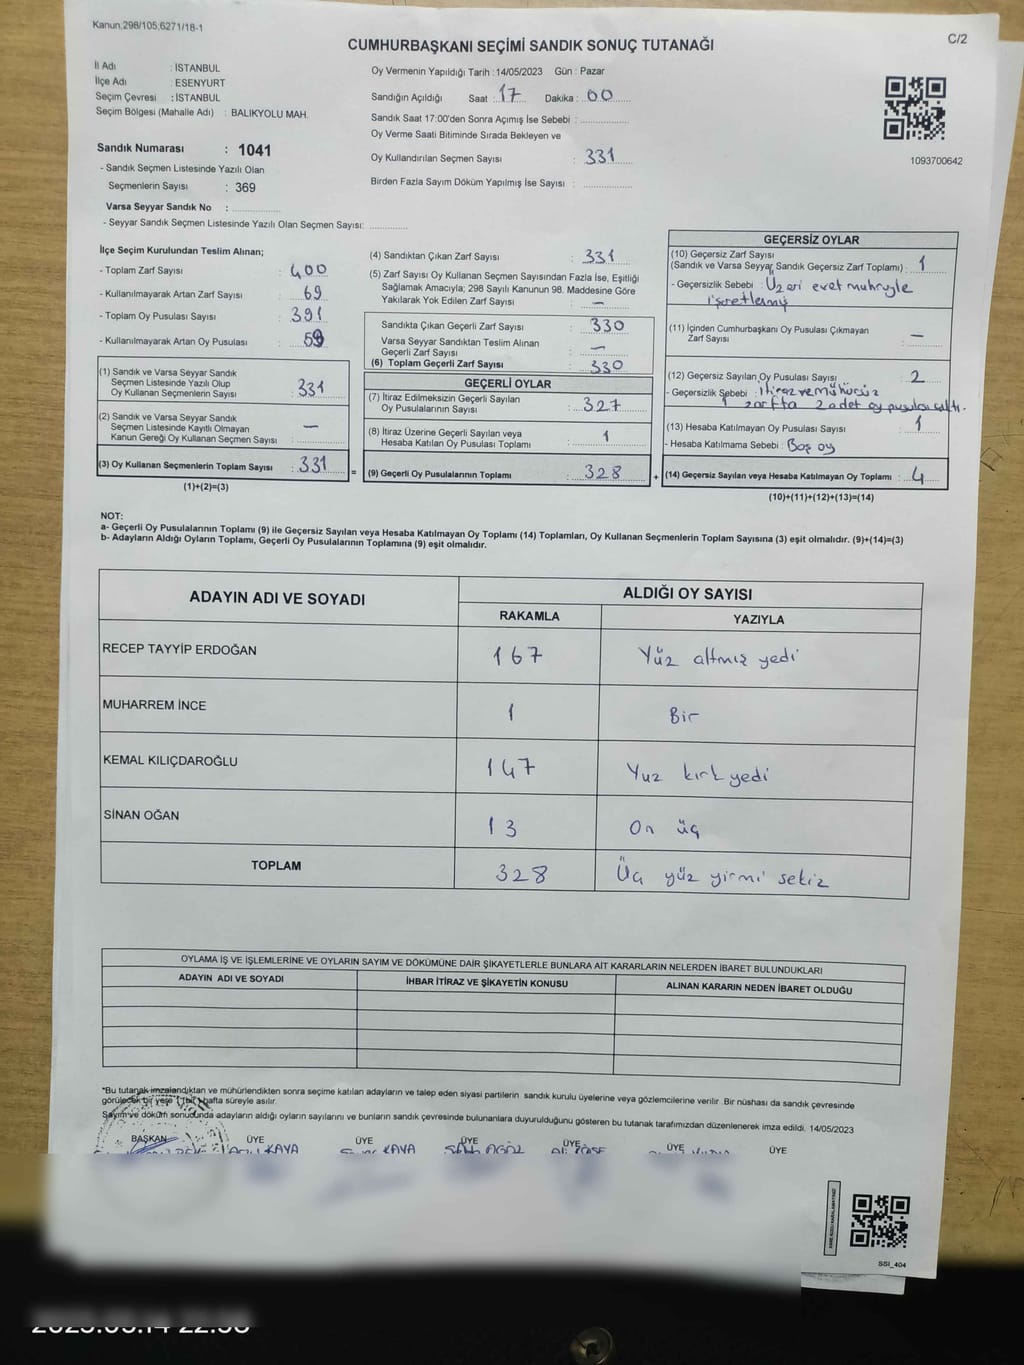 Kanun.298/105;6271/18-1
C/2
CUMHURBAŞKANI SEÇİMİ SANDIK SONUÇ TUTANAĞI
İl Adı : İSTANBUL
İlçe Adı : ESENYURT
Seçim Çevresi : İSTANBUL
Seçim Bölgesi (Mahalle Adı) : BALIKYOLU MAH.
Oy Vermenin Yapıldığı Tarih : 14/05/2023 Gün : Pazar
Sandığın Açıldığı Saat : 17 Dakika : 00
Sandık Saat 17:00'den Sonra Açımış İse Sebebi :
Oy Verme Saati Bitiminde Sırada Bekleyen ve
Oy Kullandırılan Seçmen Sayısı : 331
Birden Fazla Sayım Döküm Yapılmış İse Sayısı :
1093700642
Sandık Numarası : 1041
- Sandık Seçmen Listesinde Yazılı Olan
Seçmenlerin Sayısı : 369
Varsa Seyyar Sandık No :
- Seyyar Sandık Seçmen Listesinde Yazılı Olan Seçmen Sayısı:
İlçe Seçim Kurulundan Teslim Alınan;
- Toplam Zarf Sayısı : 400
- Kullanılmayarak Artan Zarf Sayısı : 69
- Toplam Oy Pusulası Sayısı : 391
- Kullanılmayarak Artan Oy Pusulası :
(1) Sandık ve Varsa Seyyar Sandık
Seçmen Listesinde Yazılı Olup
Oy Kullanan Seçmenlerin Sayısı : 331
(2) Sandık ve Varsa Seyyar Sandık
Seçmen Listesinde Kayıtlı Olmayan
Kanun Gereği Oy Kullanan Seçmen Sayısı : —
(3) Oy Kullanan Seçmenlerin Toplam Sayısı : 331
(1)+(2)=(3)
(4) Sandıktan Çıkan Zarf Sayısı : 331
(5) Zarf Sayısı Oy Kullanan Seçmen Sayısından Fazla İse, Eşitliği
Sağlamak Amacıyla; 298 Sayılı Kanunun 98. Maddesine Göre
Yakılarak Yok Edilen Zarf Sayısı : —
Sandıkta Çıkan Geçerli Zarf Sayısı : 330
Varsa Seyyar Sandıktan Teslim Alınan
Geçerli Zarf Sayısı : —
(6) Toplam Geçerli Zarf Sayısı : 330
GEÇERLİ OYLAR
(7) İtiraz Edilmeksizin Geçerli Sayılan
Oy Pusulalarının Sayısı : 327
(8) İtiraz Üzerine Geçerli Sayılan veya
Hesaba Katılan Oy Pusulası Toplamı : 1
= (9) Geçerli Oy Pusulalarının Toplamı : 328
GEÇERSİZ OYLAR
(10) Geçersiz Zarf Sayısı
(Sandık ve Varsa Seyyar Sandık Geçersiz Zarf Toplamı) : 1
- Geçersizlik Sebebi : Üzeri evet mühryle
işretlenmiş
(11) İçinden Cumhurbaşkanı Oy Pusulası Çıkmayan
Zarf Sayısı : —
(12) Geçersiz Sayılan Oy Pusulası Sayısı : 2
- Geçersizlik Sebebi : İtiraz ve mühürsüz
1 zarfta 2 adet oy pusulası çıktı.
(13) Hesaba Katılmayan Oy Pusulası Sayısı : 1
- Hesaba Katılmama Sebebi : Boş oy
+ (14) Geçersiz Sayılan veya Hesaba Katılmayan Oy Toplamı : 4
(10)+(11)+(12)+(13)=(14)
NOT:
a- Geçerli Oy Pusulalarının Toplamı (9) ile Geçersiz Sayılan veya Hesaba Katılmayan Oy Toplamı (14) Toplamları, Oy Kullanan Seçmenlerin Toplam Sayısına (3) eşit olmalıdır. (9)+(14)=(3)
b- Adayların Aldığı Oyların Toplamı, Geçerli Oy Pusulalarının Toplamına (9) eşit olmalıdır.
ADAYIN ADI VE SOYADI
ALDIĞI OY SAYISI
RAKAMLA YAZIYLA
RECEP TAYYİP ERDOĞAN 167 Yüz altmış yedi
MUHARREM İNCE 1 Bir
KEMAL KILIÇDAROĞLU 147 Yuz kırk yedi
SİNAN OĞAN 13 On üç
TOPLAM 328 Üç yüz yirmi sekiz
OYLAMA İŞ VE İŞLEMLERİNE VE OYLARIN SAYIM VE DÖKÜMÜNE DAİR ŞİKAYETLERLE BUNLARA AİT KARARLARIN NELERDEN İBARET BULUNDUKLARI
ADAYIN ADI VE SOYADI İHBAR İTİRAZ VE ŞİKAYETİN KONUSU ALINAN KARARIN NEDEN İBARET OLDUĞU
*Bu tutanak imzalandıktan ve mühürlendikten sonra seçime katılan adayların ve talep eden siyasi partilerin sandık kurulu üyelerine veya gözlemcilerine verilir. Bir nüshası da sandık çevresinde
görülecek bir yere 1 (bir) hafta süreyle asılır.
Sayım ve döküm sonucunda adayların aldığı oyların sayılarını ve bunların sandık çevresinde bulunanlara duyurulduğunu gösteren bu tutanak tarafımızdan düzenlenerek imza edildi. 14/05/2023
BAŞKAN ÜYE ÜYE ÜYE ÜYE ÜYE ÜYE
KAYA KAYA
SSİ_404